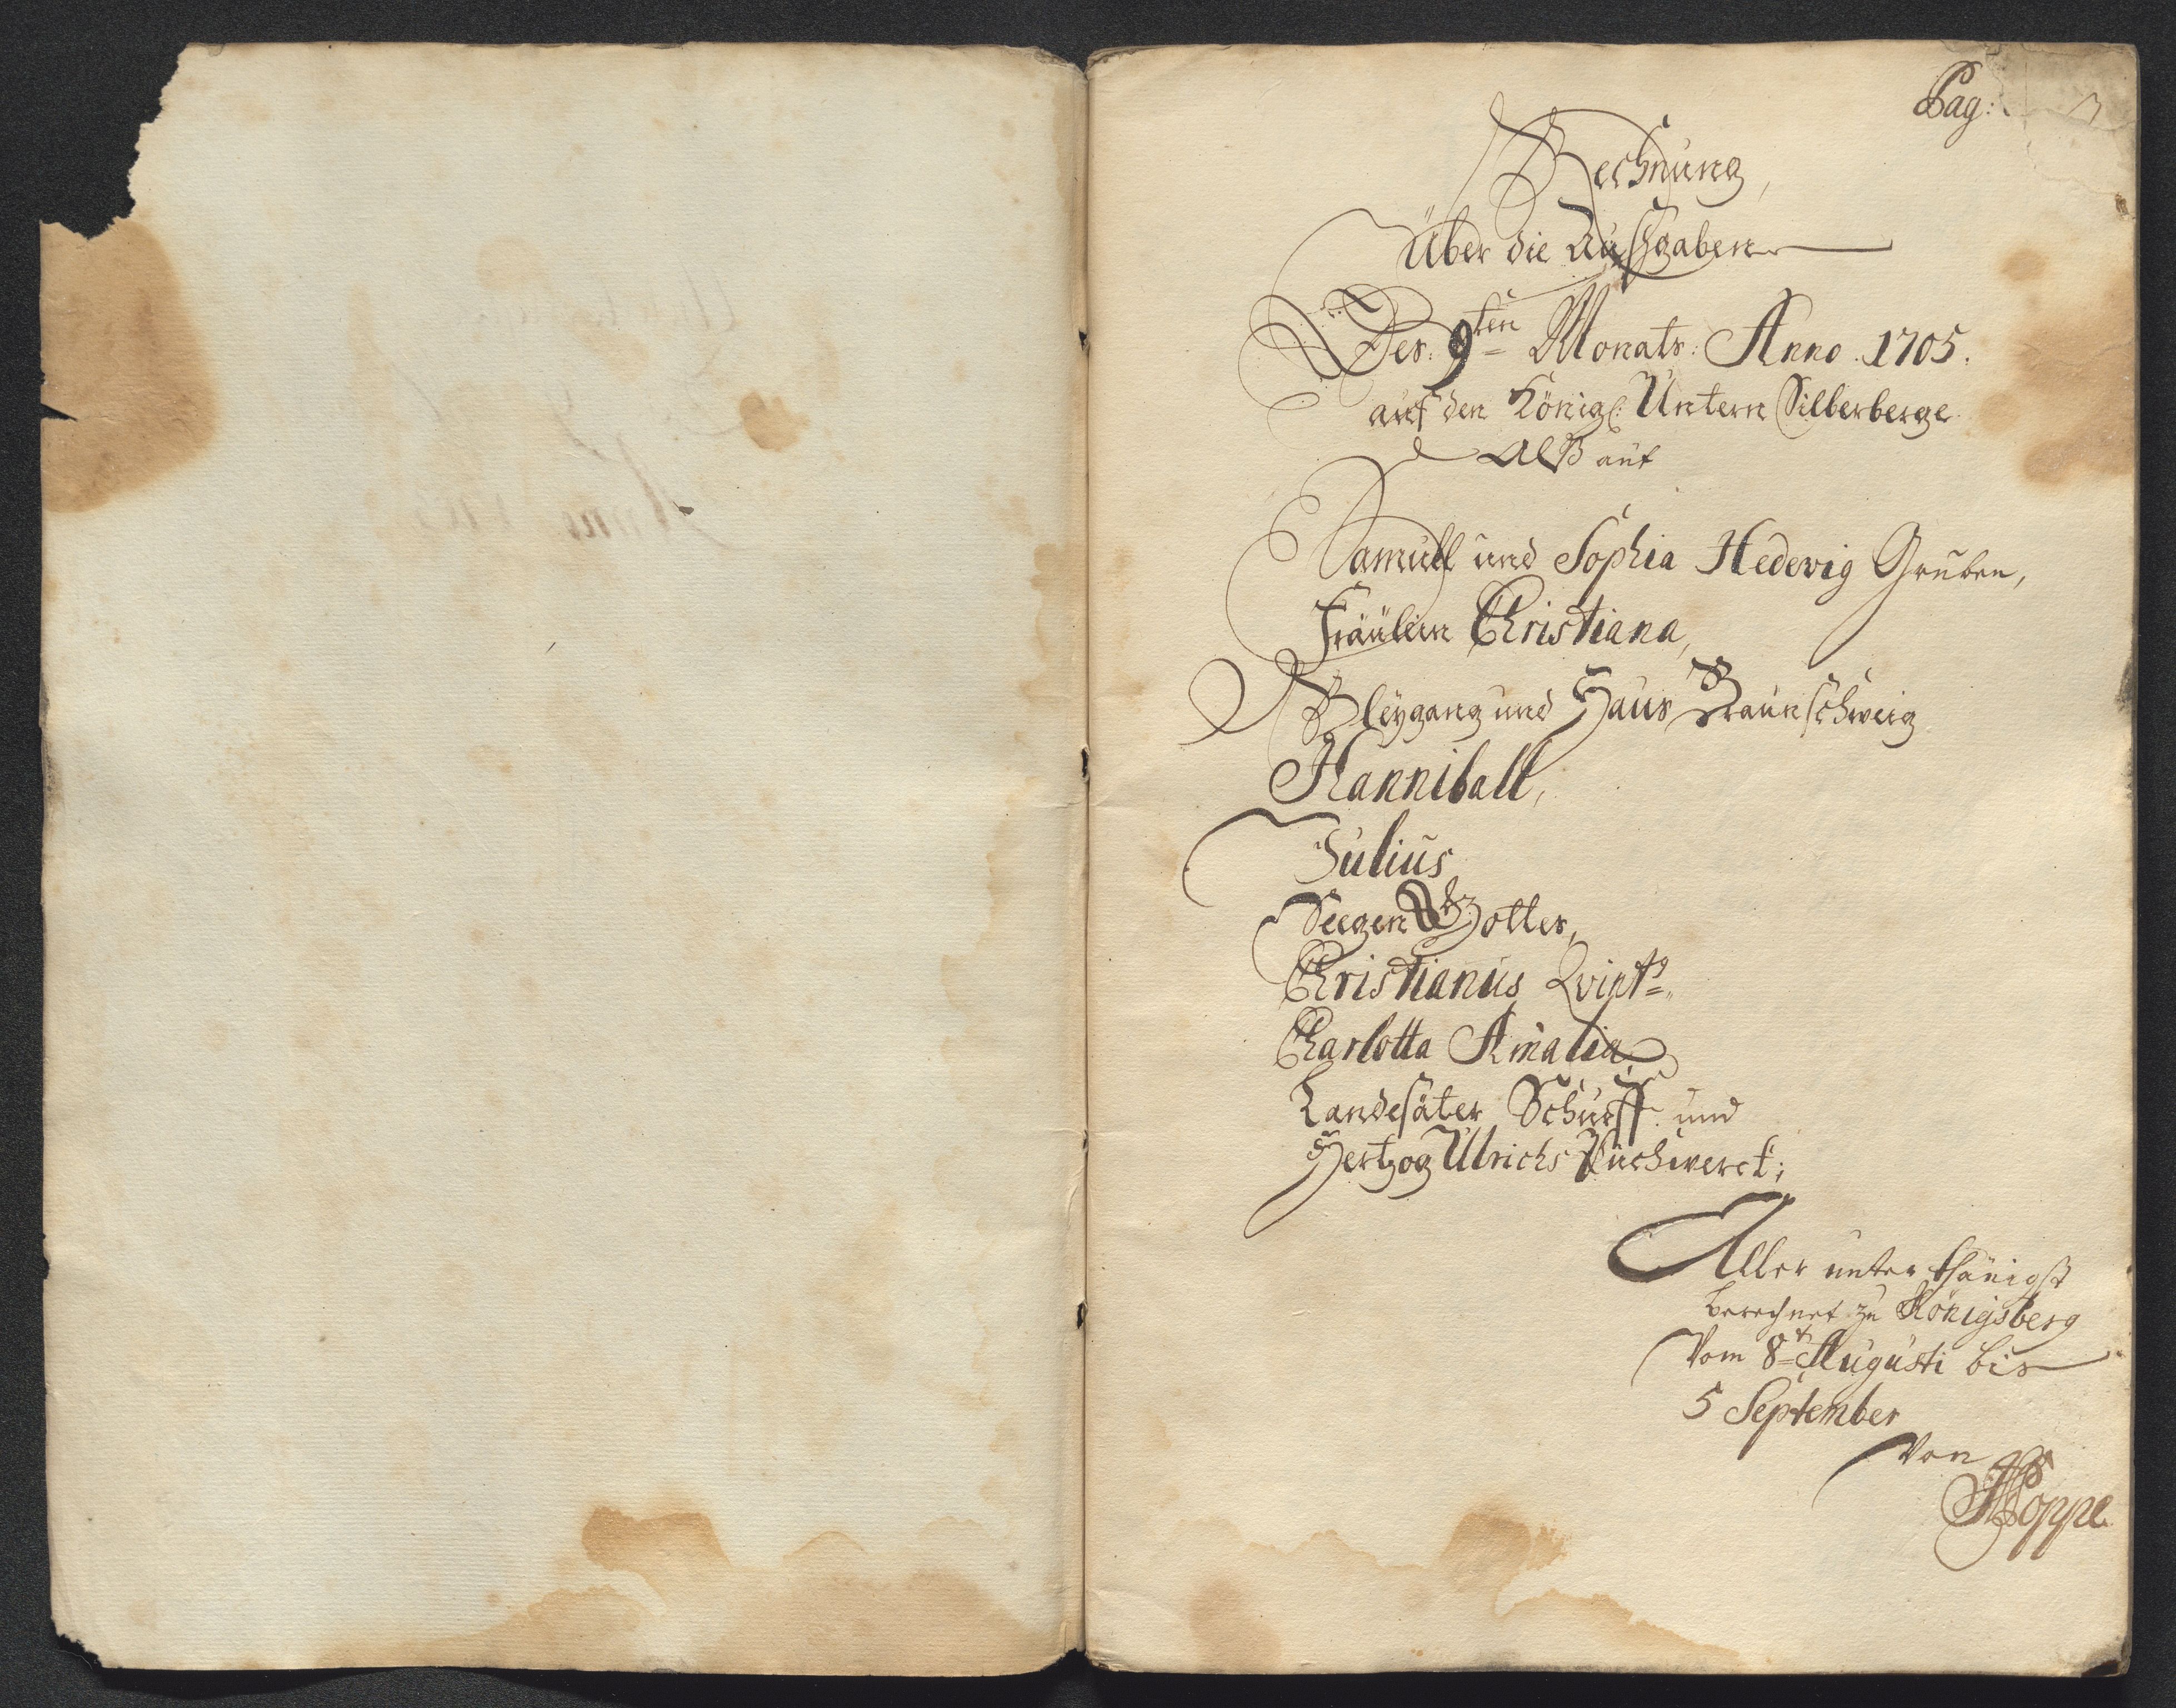 Pag:
Rechnung,
Über die Außgaben
Des 9ten Monats: Anno. 1705.
auf den Königl: Untern Silberberge
Alß auf
Samuell und Sophia Hedevig Gruben,
Fräulein Christiana,
Bleygang und Haus Braunschweig
Hanniball,
Julius
Seegen Gottes,
Christianus Qvint9
Charlotta Amalia
Landesäter Schurff und
Hertzog Ulrichs Puchwerck;
Aller unterthänigst
berechnet zu Königsberg
Vom 8t Augusti bis
5 September
Von
Hoppe